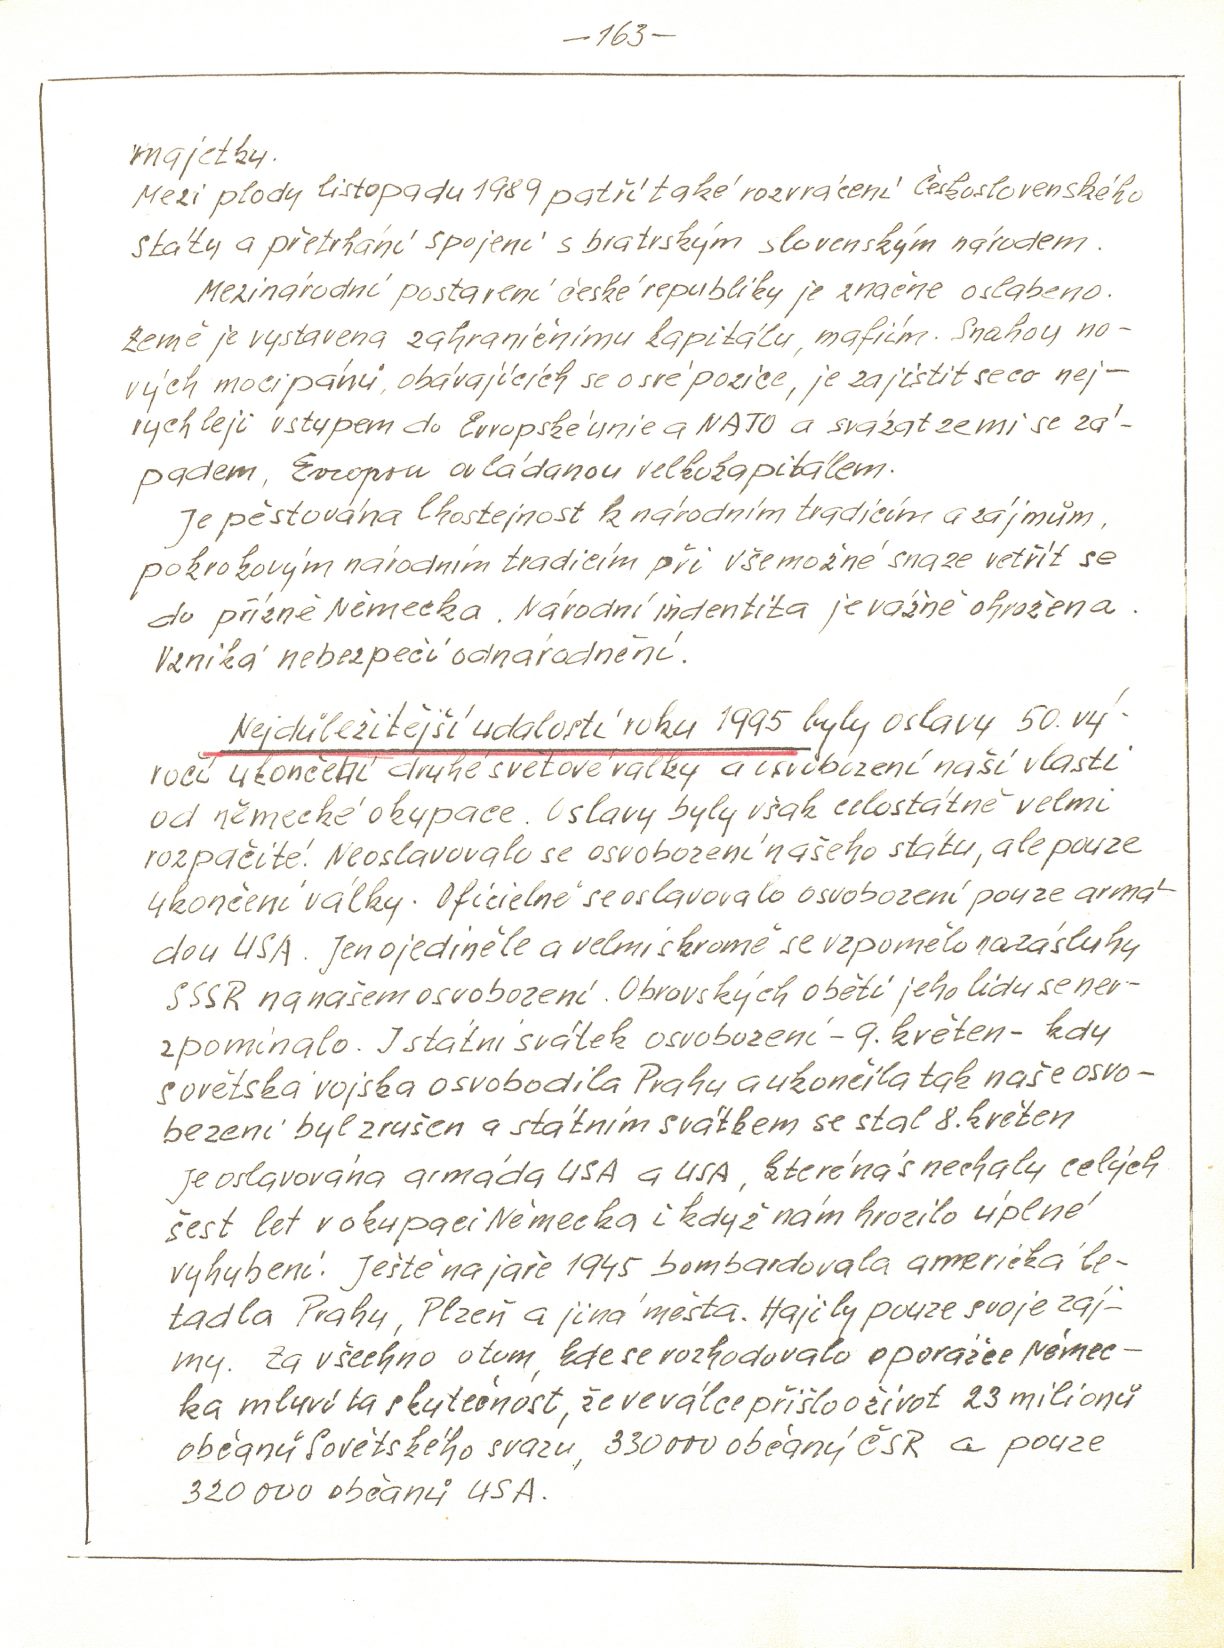 — 163 —
majetku.
Mezi plody listopadu 1989 patří také rozvrácení Československého
státu a přetrhání spojení s bratrským slovenským národem.
Mezinárodní postavení české republiky je značne oslabeno.
Země je vystavena zahraničnímu kapitálu, mafiím. Snahou no-
vých mocipánů, obávajících se o své pozice, je zajistit se co nej-
rychleji vstupem do Evropské unie a NATO a svázat zemi se zá-
padem, Evropou ovládanou velkokapitálem.
Je pěstována lhostejnost k národním tradicím a zájmům,
pokrokovým národním tradicím při všemožné snaze vetřít se
do přízně Německa. Národní indentita je vážně ohrožena.
Vzniká nebezpečí odnárodnění.
Nejdůležitější událostí roku 1995 byly oslavy 50. vý-
ročí ukončení druhé světové války a osvobození naší vlasti
od německé okupace. Oslavy byly však celostátně velmi
rozpačité. Neoslavovalo se osvobození našeho státu, ale pouze
ukončení války. Oficielně se oslavovalo osvobození pouze armá-
dou USA. Jen ojediněle a velmi skromě se vzpomělo na zásluhy
SSSR na našem osvobození. Obrovských obětí jeho lidu se nev-
zpomínalo. I státní svátek osvobození - 9. květen - kdy
sovětská vojska osvobodila Prahu a ukončila tak naše osvo-
bezení byl zrušen a státním svátkem se stal 8. květen
Je oslavována armáda USA a USA, které nás nechaly celých
šest let v okupaci Německa i když nám hrozilo úplné
vyhubení. Ještě na jaře 1945 bombardovala americká le-
tadla Prahu, Plzeň a jiná města. Hájily pouze svoje záj-
my. Za všechno o tom, kde se rozhodovalo o porážce Němec-
ka mluví ta skutečnost, že ve válce přišlo o život 23 milionů
občanů Sovětského svazu, 330 000 občanů ČSR a pouze
320 000 občanů USA.